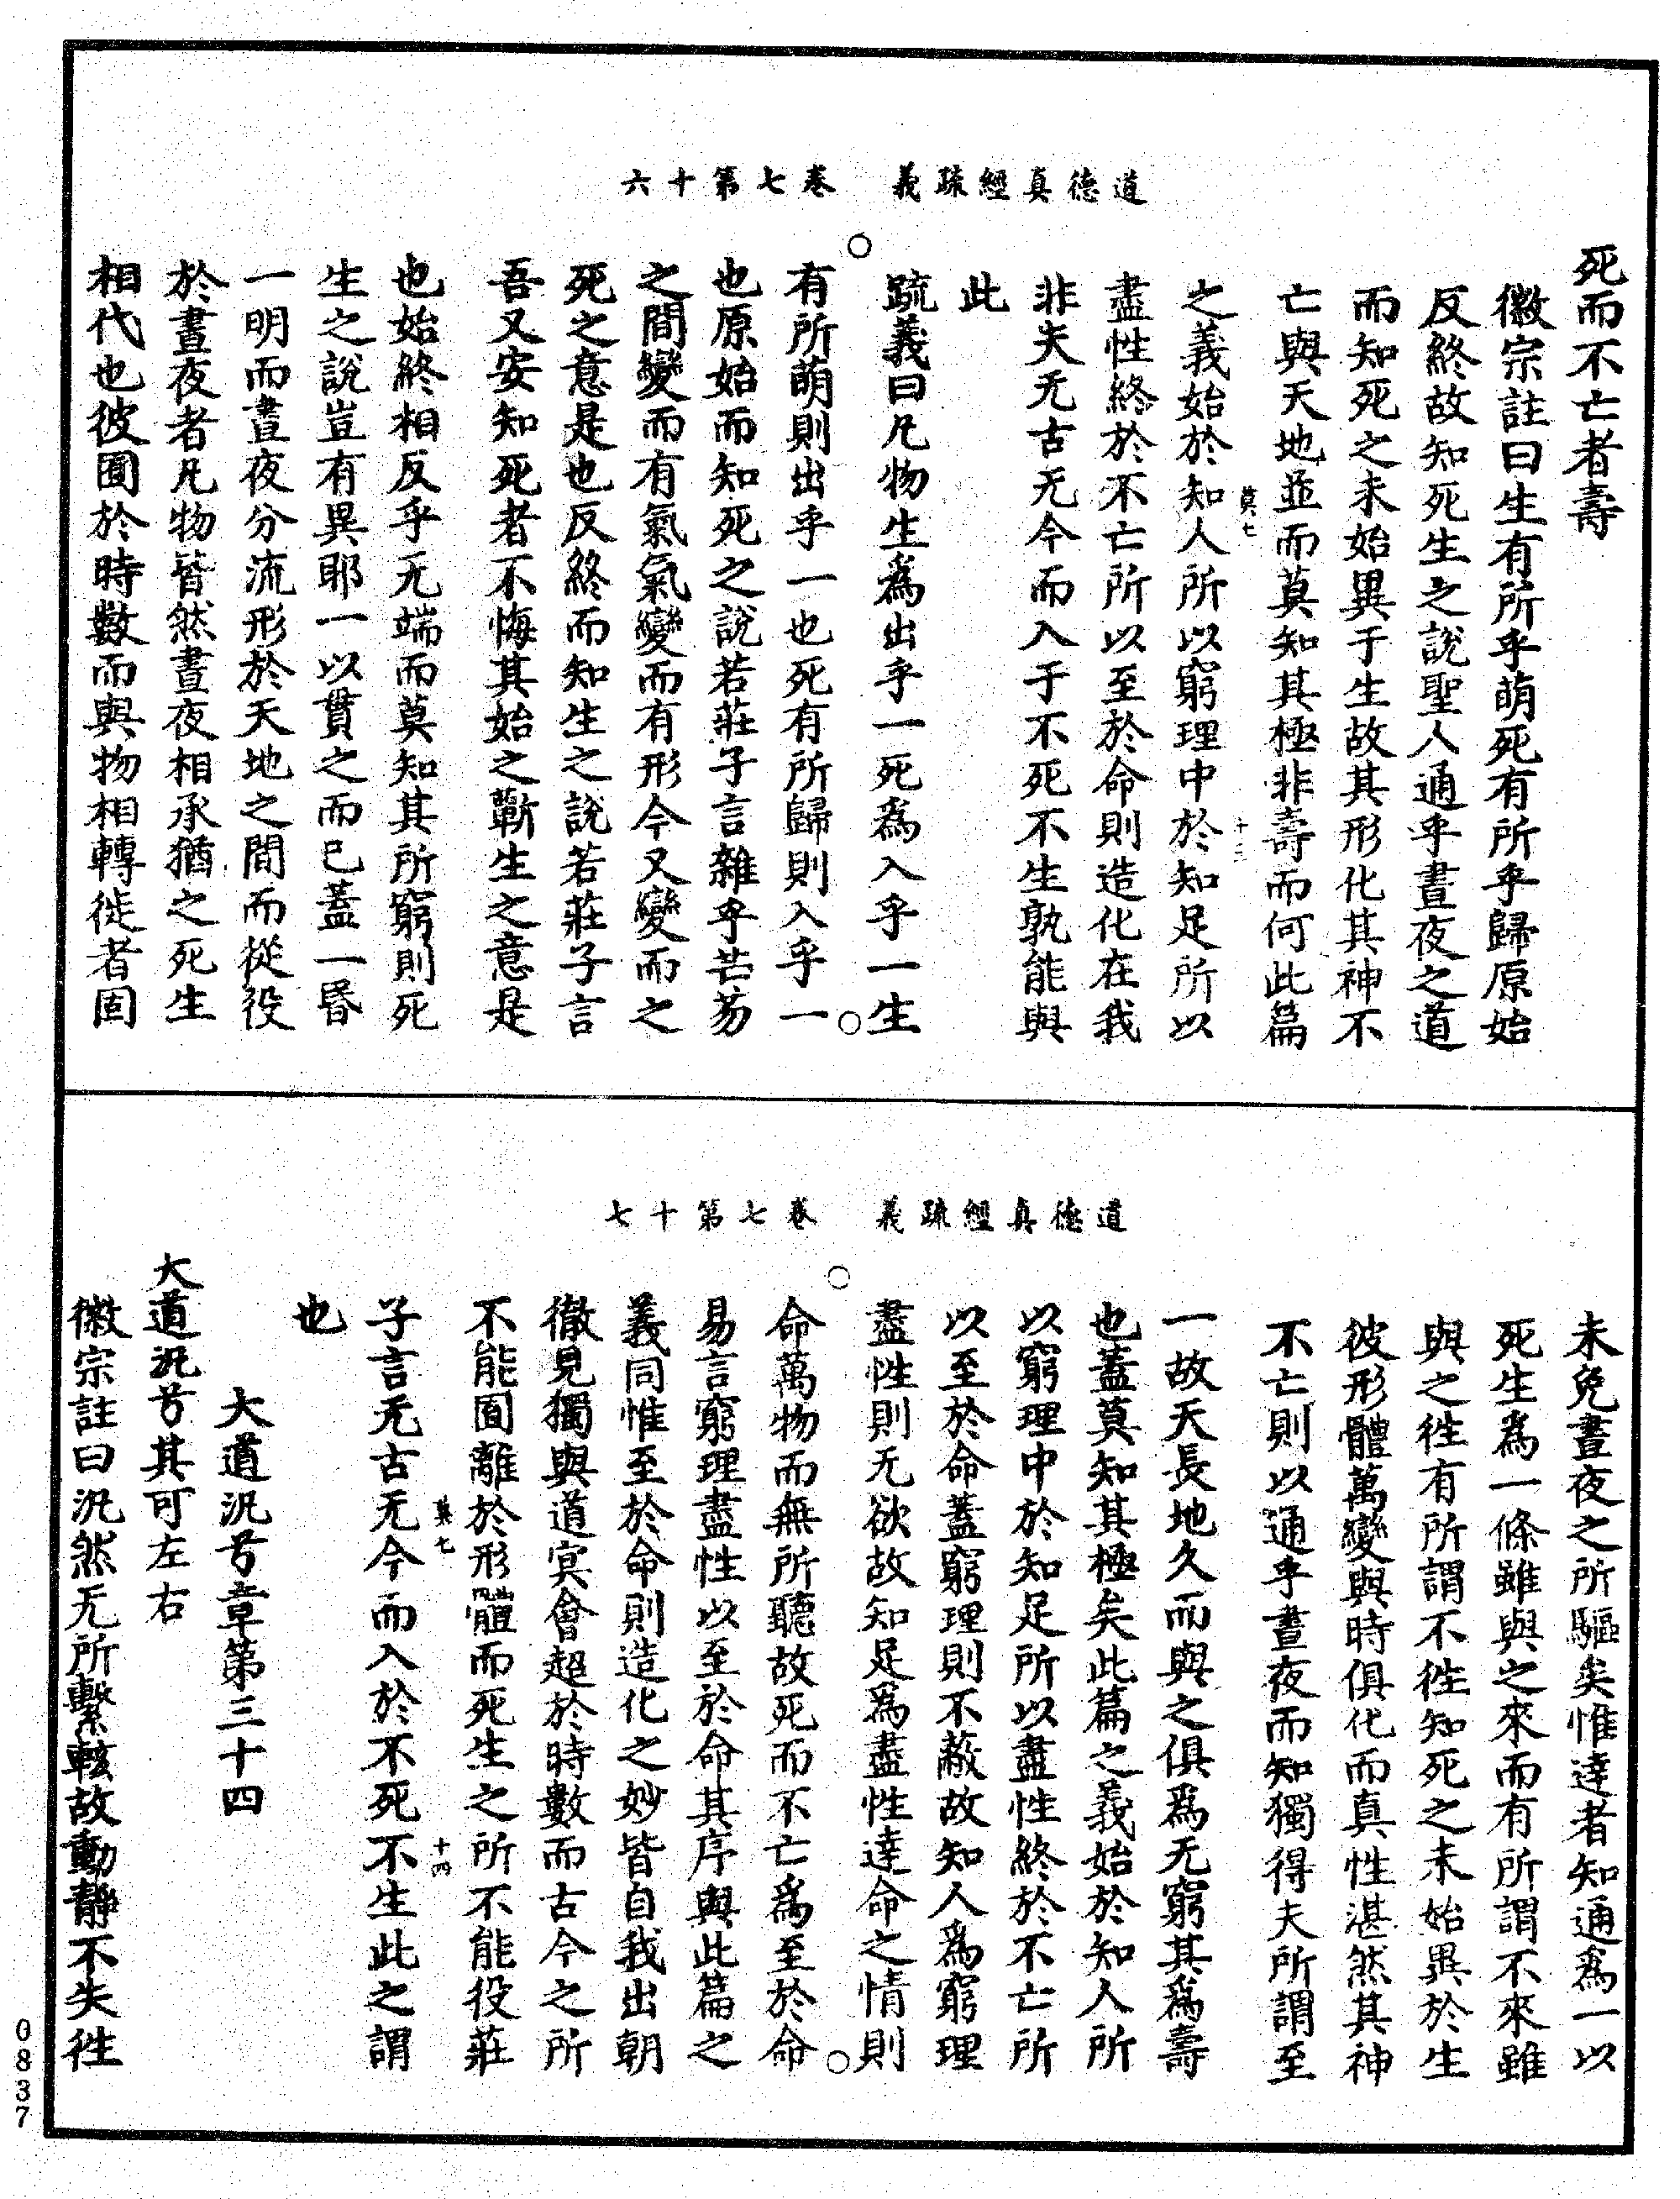 道德真經疏義　卷七第十六
死而不亡者壽
徽宗註曰生有所乎萌死有所乎歸原始
反終故知死生之說聖人通乎晝夜之道
而知死之未始異于生故其形化其神不
亡與天地並而莫知其極非壽而何此篇
莫七　十三
之義始於知人所以窮理中於知足所以
盡性終於不亡所以至於命則造化在我
非夫无古无今而入于不死不生孰能與
此
疏義曰凡物生爲出乎一死爲入乎一生
有所萌則出乎一也死有所歸則入乎一
也原始而知死之說若莊子言雜乎芒芴
之間變而有氣氣變而有形今又變而之
死之意是也反終而知生之說若莊子言
吾又安知死者不悔其始之蘄生之意是
也始終相反乎无端而莫知其所窮則死
生之說豈有異耶一以貫之而已蓋一昬
一明而晝夜分流形於天地之間而從役
於晝夜者凡物皆然晝夜相承猶之死生
相代也彼囿於時數而與物相轉徙者固
道德真經疏義　卷七第十七
未免晝夜之所驅矣惟達者知通爲一以
死生爲一條雖與之來而有所謂不來雖
與之徃有所謂不徃知死之未始異於生
彼形體萬變與時俱化而真性湛然其神
不亡則以通乎晝夜而知獨得夫所謂至
一故天長地久而與之俱爲无窮其爲壽
也蓋莫知其極矣此篇之義始於知人所
以窮理中於知足所以盡性終於不亡所
以至於命蓋窮理則不蔽故知人爲窮理
盡性則无欲故知足爲盡性達命之情則
命萬物而無所聽故死而不亡爲至於命
易言窮理盡性以至於命其序與此篇之
義同惟至於命則造化之妙皆自我出朝
徹見獨與道冥會超於時數而古今之所
不能囿離於形體而死生之所不能役莊
莫七　十四
子言无古无今而入於不死不生此之謂
也
大道汎兮章第三十四
大道汎兮其可左右
徽宗註曰汎然无所繫輆故動靜不失徃
0837